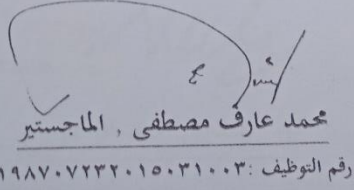 محمد عارف مصطفى , الماجستير
رقم التوظيف : ١٩٨٧٠٧٢٣٢٠١٥٠٣١٠٠٣